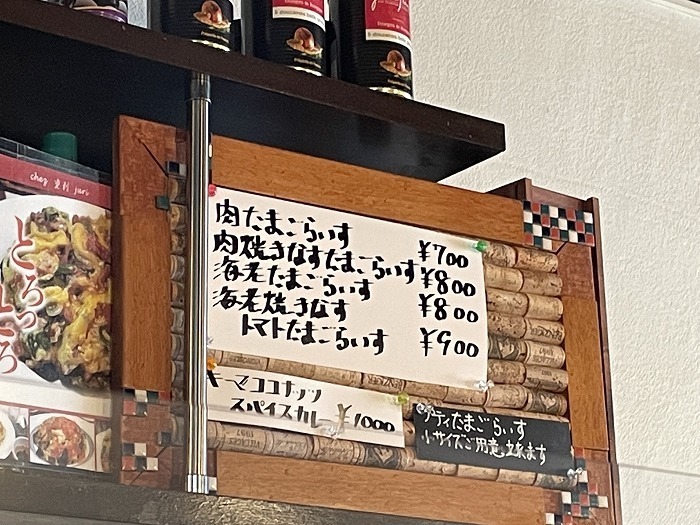 chez 真利 juri
とろっ
とろ
肉たまごらいす ¥700
肉焼きなすたまごらいす ¥800
海老たまごらいす ¥800
海老焼きなす
トマトたまごらいす ¥900
キーマココナッツ
スパイスカレー ¥1000
プティたまごらいす
小サイズご用意出来ます